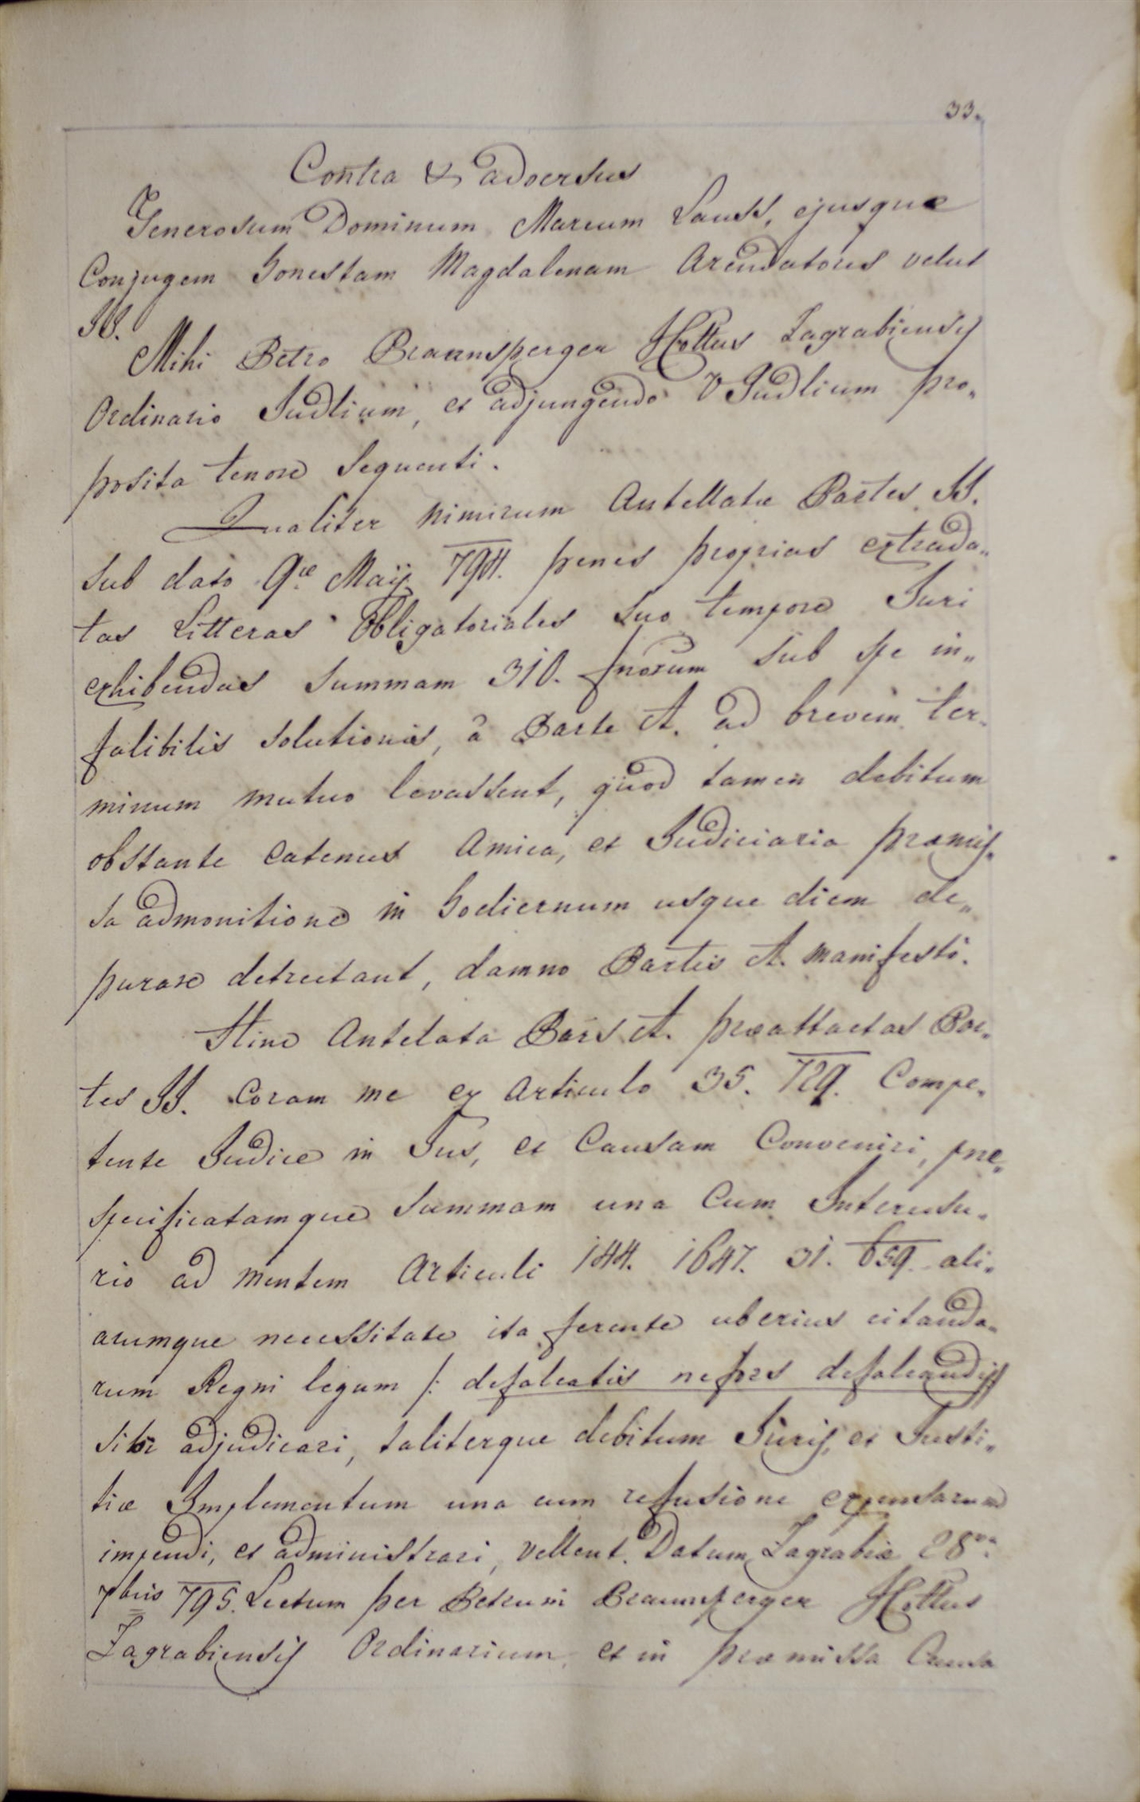 33.
Contra & adversus
Generosum Dominum Marcum Lauss, ejusque
Conjugem honestam Magdalenam Arendatores velut
II.
Mihi Petro Braunsperger Cottus Zagrabiensis
Ordinario Judlium, et adjungendo V Judlium pro„
posita tenore sequenti.
Qualiter nimirum Antellatae Partes II.
sub dato 9ae Maij 794. penes proprias extrada„
tas Litteras Obligatoriales suo tempore Juri
exhibendas summam 310. fnorum sub spe in„
falibilis solutionis, à Parte A. ad brevem ter„
minum mutuo levassent, quod tamen debitum
obstante eatenus Amica, et Judiciaria praemis„
sa admonitione in hodiernum usque diem de„
purare detrectant, damno Partis A. manifesto.
Hinc Antelata Pars A. praeattactas Par„
tes II. Coram me ex Articulo 35. 729. Compe„
tente Judice in Jus, et Causam Conveniri, prae„
specificatamque summam una Cum Interusu„
rio ad mentem Articuli 144. 1647. 31. 659. ali„
arumque necessitate ita ferente uberius citanda„
rum Regni legum /: defalcatis nefors defalcandis /
sibi adjudicari, taliterque debitum Juris, et Justi„
tiae Implementum una cum refusione expensarum
impendi, et administrari, vellent. Datum Zagrabiae 28va
7bris 795. Lectum per Petrum Braunsperger Cottus
Zagrabiensis Ordinarium et in praemissa Causa